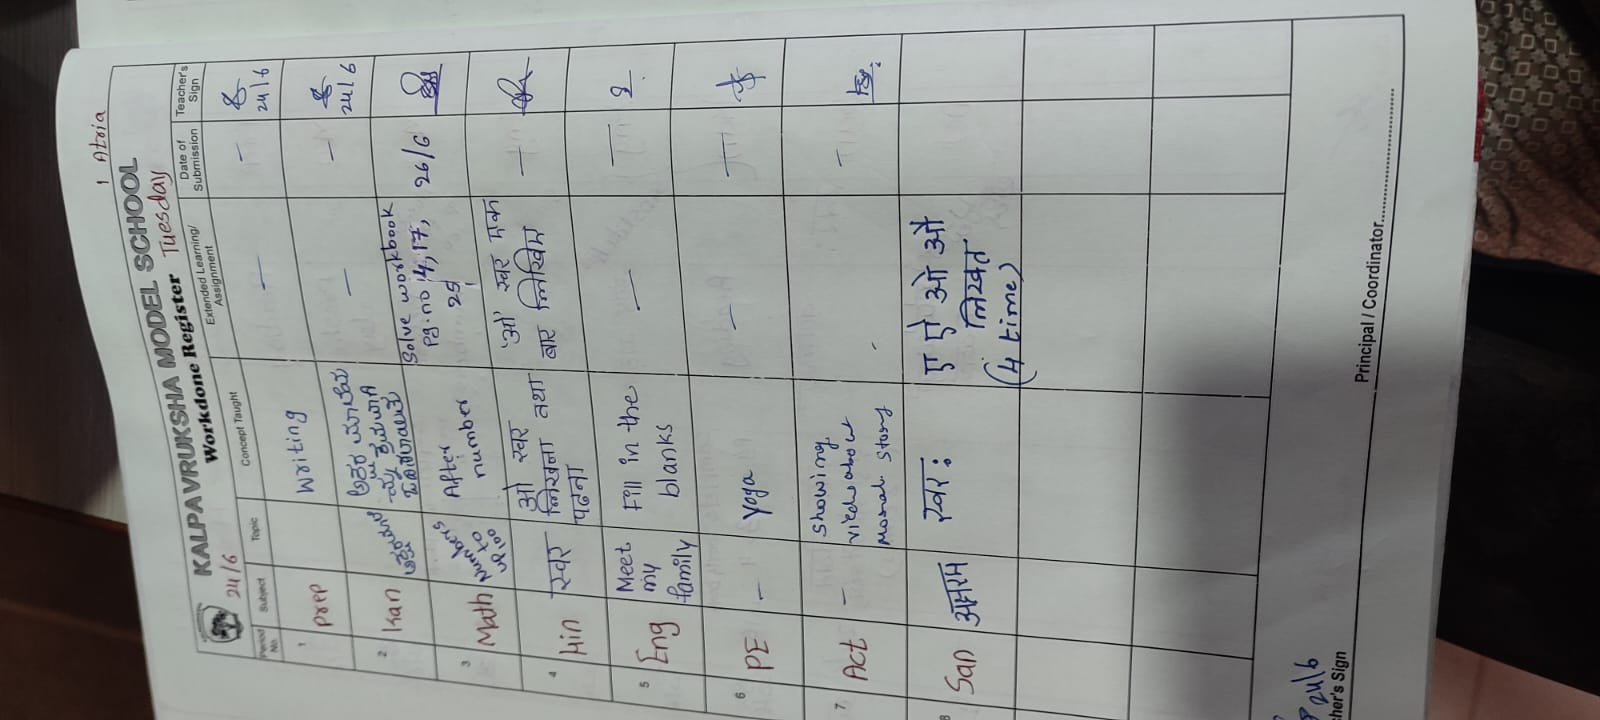 1 Atria
KALPAVRUKSHA MODEL SCHOOL
24/6 Workdone Register Tuesday
Period No. Subject Topic Concept Taught Extended Learning/ Assignment Date of Submission Teacher's Sign
1 Prep Writing — — 24/6
2 Kan — — 24/6
3 Math Numbers upto 100 After number Solve workbook Pg.no 14, 17, 25 26/6
4 Hin स्वर ओ स्वर लिखना तथा पढना 'ओ' स्वर एक बार लिखिए —
5 Eng Meet my family Fill in the blanks — —
6 PE – Yoga — —
7 Act – Showing video about moral story - –
8 San स्वर: ए ऐ ओ औ लिखत (4 time)
24/6
cher's Sign
Principal / Coordinator